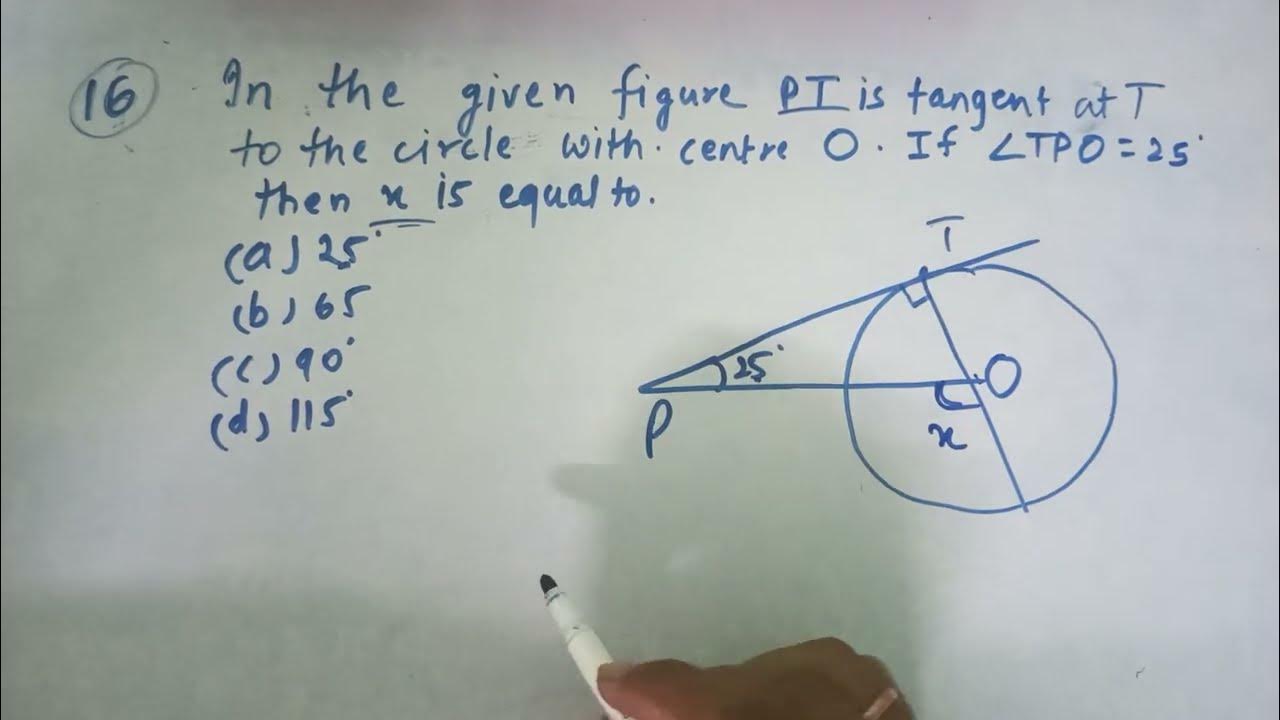 16 In the given figure PT is tangent at T
to the circle with centre O. If ∠TPO = 25°
then x is equal to.
(a) 25°
(b) 65
(c) 90°
(d) 115°
T
25°
O
P
x